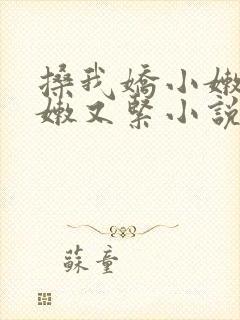 搡我嬌小嫩
嫩又緊小說
蘇童